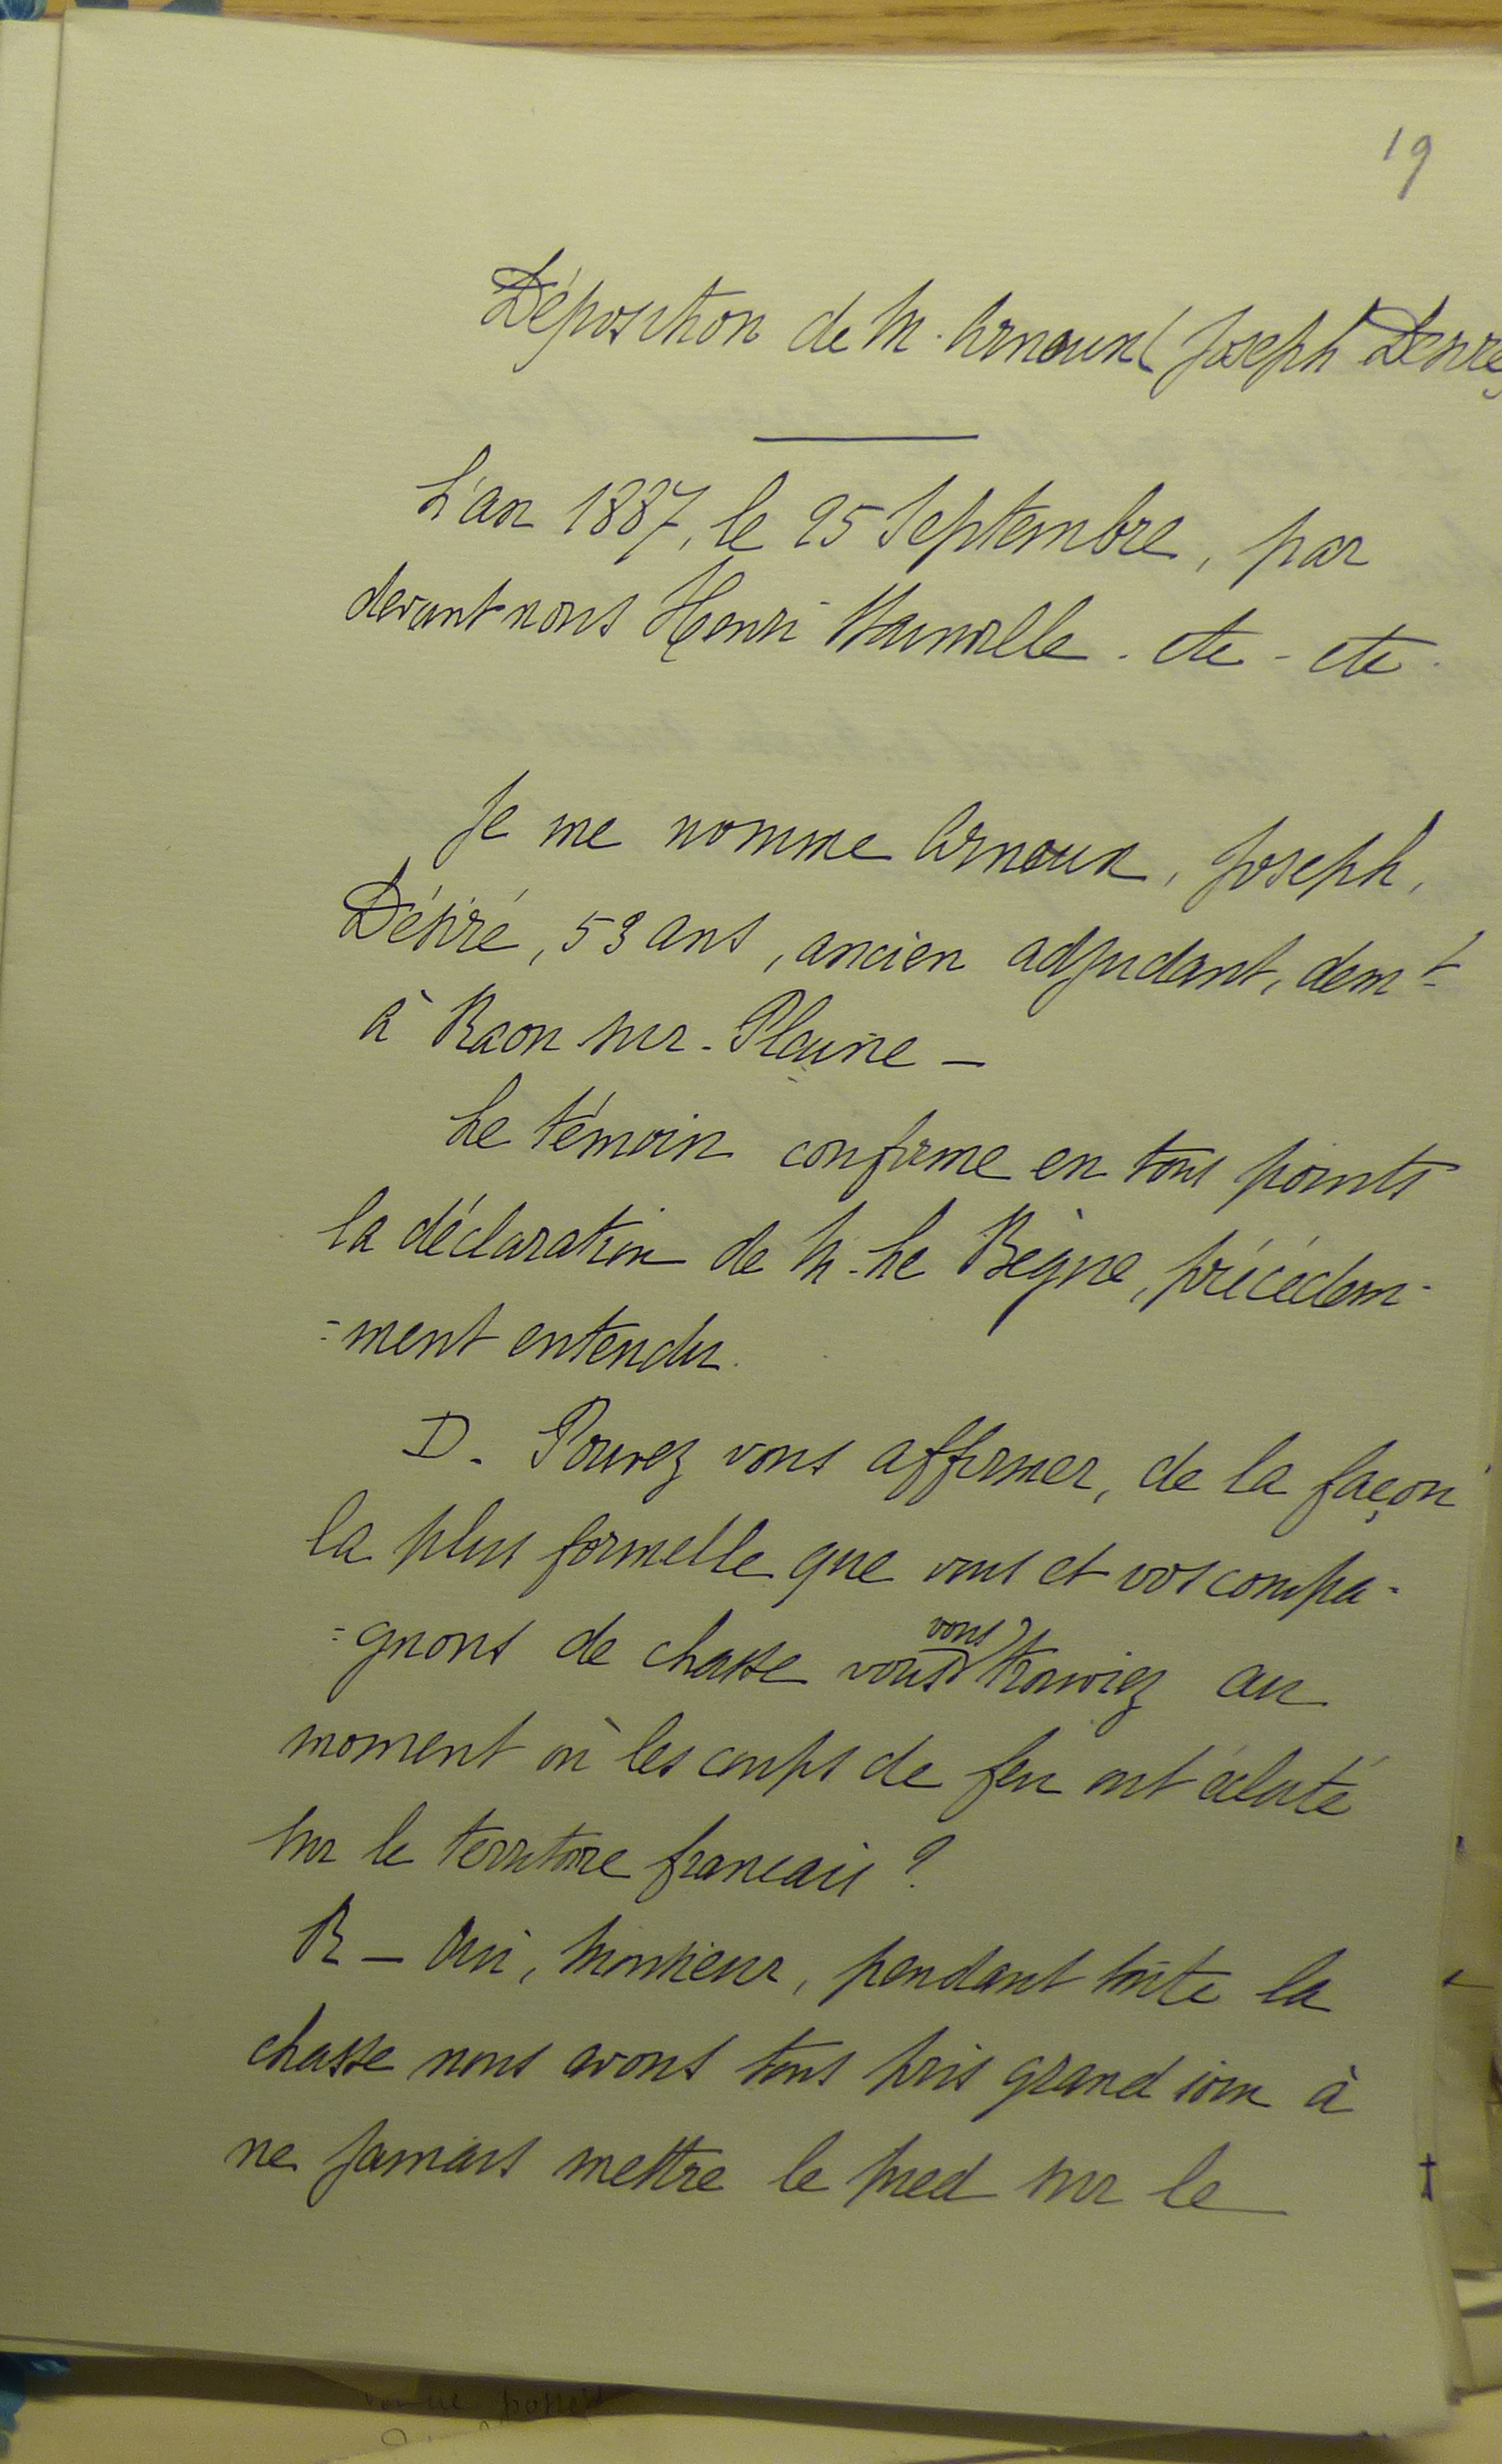 19
Déposition de M. Arnoux (Joseph Desiré
L'an 1887, le 25 Septembre, par
devant nous Henri etc - etc.
Je me nomme Arnoux, Joseph,
Désiré, 53 ans, ancien adjudant, demt
à Raon sur-Plaine -
Le témoin confirme en tous points
la déclaration de M. Le Bègue, précédem-
=ment entendu.
D. Pouvez vous affirmer, de la façon
la plus formelle que vous et vos compa-
=gnons de chasse vous vous trouviez au
moment où les coups de feu ont éclaté
sur le territoire francais ?
R - Oui, Monsieur, pendant toute la
chasse nous avons tous pris grand soin à
ne jamais mettre le pied sur le